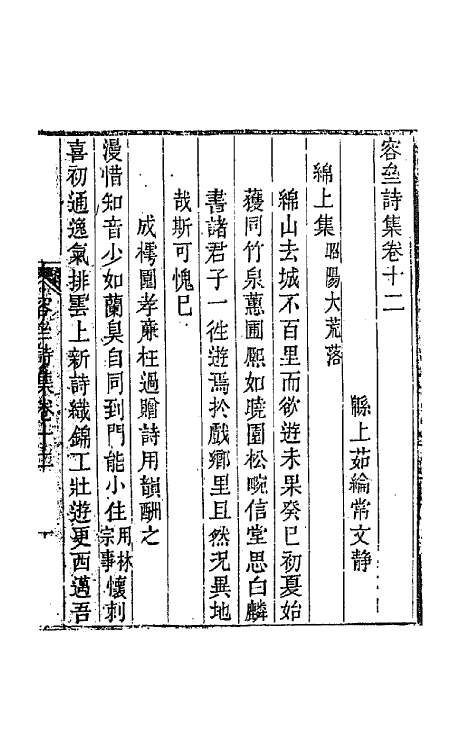 容垒詩集卷十二
緜上茹綸常文靜
綿上集昭陽大荒落
綿山去城不百里而欲遊未果癸巳初夏始
獲同竹泉蕙圃熙如曉園松畹信堂思白麟
書諸君子一往遊焉於戲鄉里且然况異地
哉斯可愧已
成樗園孝廉枉過贈詩用韻酬之
漫惜知音少如蘭臭自同到門能小住用林宗事懷刺
喜初通逸氣排雲上新詩織錦工壯遊更西邁吾
容垒詩集卷十二